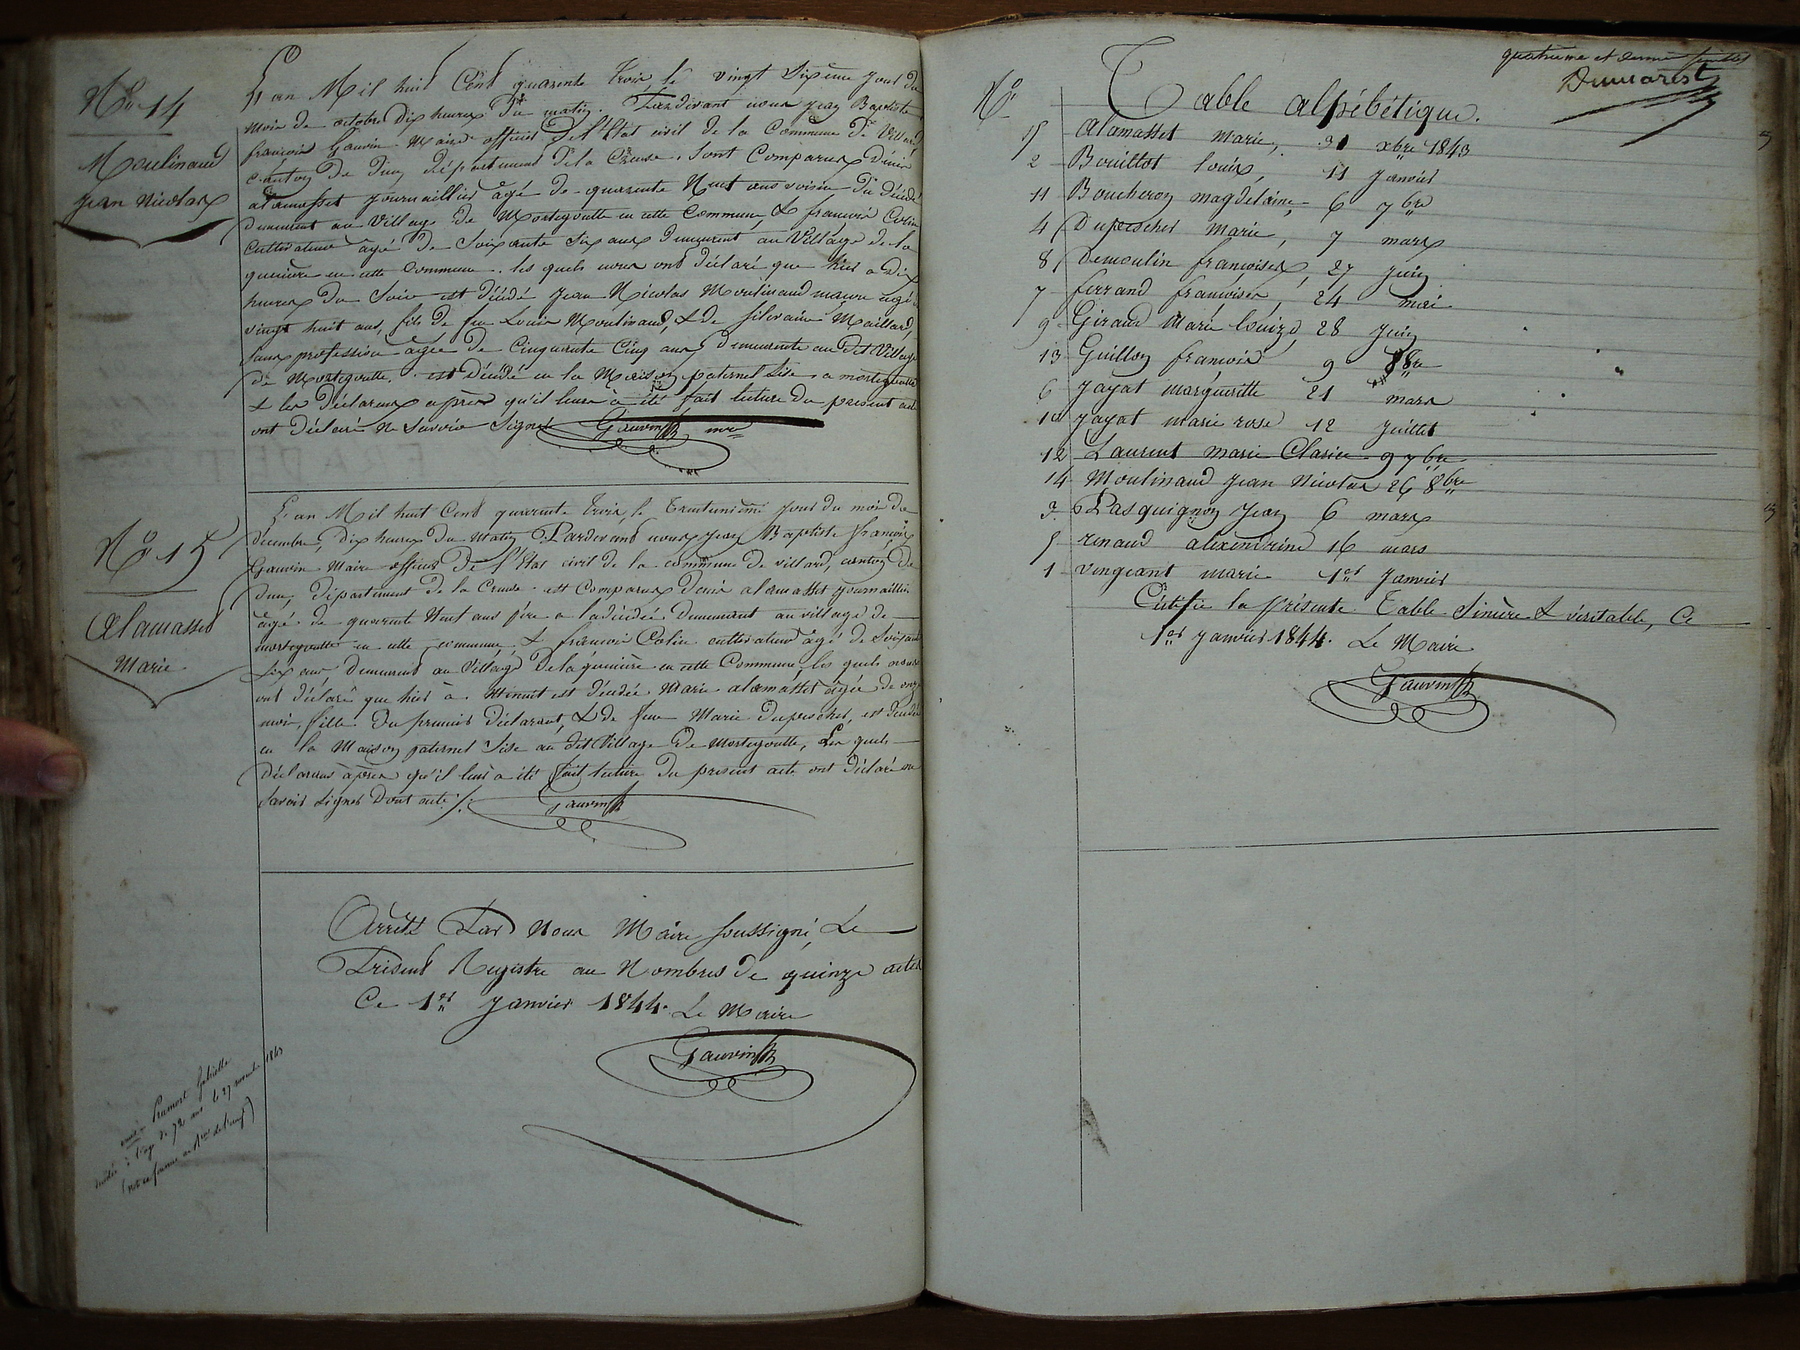 N.o 14
Moulinaud
Jean Nicolas
L'an Mil huit Cent quarente trois, le vingt Sixième jour du
mois de octobre dix heures du matin. Pardevant nous Jean Baptiste
françois Gauvin Maire officier de l'Etat civil de la Commune de Villard
canton de Dun, département de la Creuse. Sont Comparus Denis
alamasset journaillier âgé de quarente Huit ans voisin du décédé
demeurant au Village de Mortegoutte en cette Commune, & françois Colin
Cultivateur agé de Soixante Six ans demeurant au Village de la
gunière en cette Commune. les quels nous ont déclaré que hier a Dix
heures du Soir est décédé Jean Nicolas Moulinaud maçon agé
vingt huit ans, fils de feu Louis Moulinaud, & de Silvaine Maillard,
sans profession agée de Cinquante Cinq ans demeurante au dit Village
de Mortegoutte. est décédé en la Maison paternel Sise a mortegoutte
& les déclarans après qu'il leurs a été fait lecture du present acte
ont déclaré ne Savoir Signer Gauvin mre
N.o 15
Alamasset
Marie
L'an Mil huit Cent quarente trois, le trenteunième jour du mois de
décembre, dix heures du Matin Pardevant nous Jean Baptiste françois
Gauvin Maire officier de l'Etat civil de la commune de villard, canton de
Dun, département de la Creuse. est Comparus Denis alamasset journaillier
âgé de quarente Huit ans père a la décédée demeurant au village de
mortegoutte en cette commune & françois Colin cultivateur âgé de Soixante
Six ans, demeurant au Village de la gunière en cette Commune, les quels nous
ont déclaré que hier à Minuit est décédée Marie alamasset agée de onze
mois, fille du premier déclarant, & de feue Marie duperchet, est décédée
en la Maison paternel Sise au dit Village de Mortegoutte, Les quels
déclarans après qu'il leur a été fait lecture du present acte ont déclaré ne
savoir signer Dont acte ./. Gauvin
Arrêté Par Nous Maire soussigné, Le
Présent Registre au Nombres de quinze actes
Ce 1er Janvier 1844. Le Maire
Gauvin
à l'age de 72 ans le 27 1843
quatrième et dernier feuillet
Dumarest
N.o Table alpébétique.
15 Alamasset marie, 31 xbre 1843
2 Bouillot louis, 11 Janvier
11 Boucheron magdelaine, 6 7bre
4 Duperchet Marie, 7 mars
8 Demoulin françoises, 27 Juin
7 ferrand françoises, 24 mai
9 Giraud Marie louize, 28 Juin
13 Guillon françois 9 8bre
6 Jayat margueritte 21 mars
10 Jayat marie rose 12 Juillet
12 Laurent marie Clarice 9 7bre
14 Moulinaud Jean Nicolas 26 8bre
3 Pasquignon Jean 6 mars
5 renaud alexendrine 16 mars
1 vingeant marie 1er Janvier
Certifié la présente Table Sincère & véritable, Ce
1er Janvier 1844. Le Maire
Gauvin